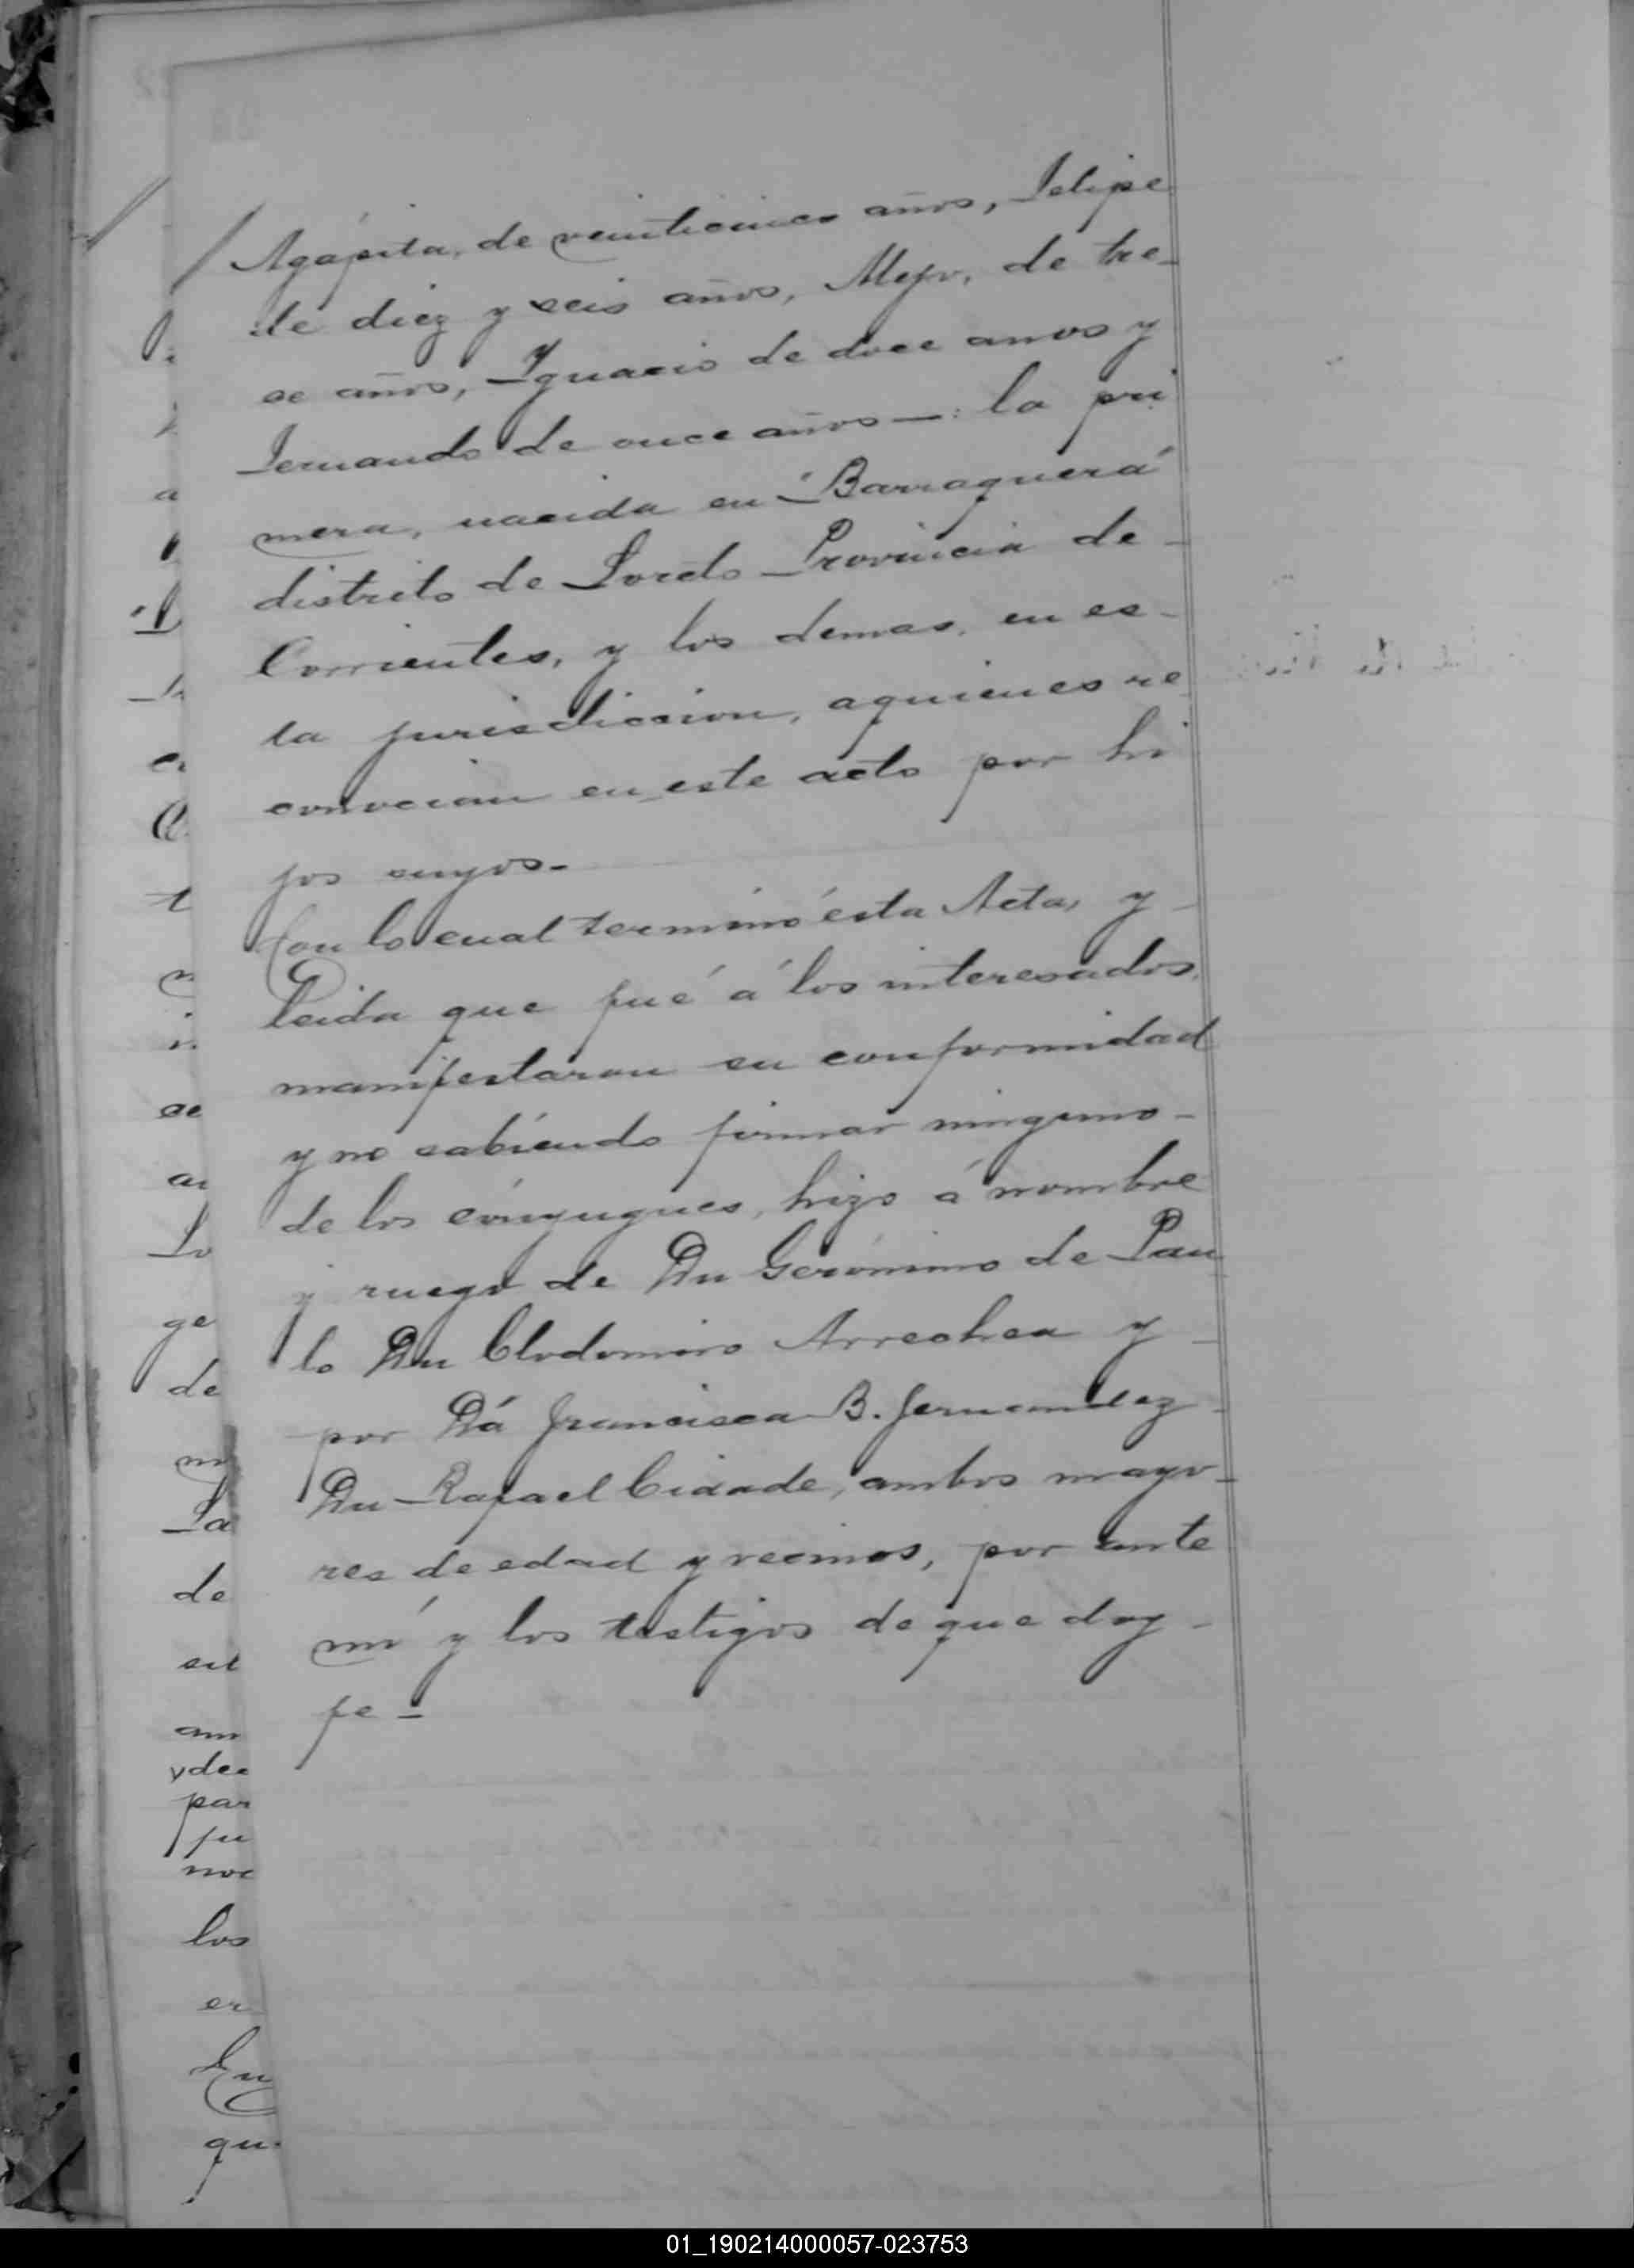 Agápita, de veinticinco años, Felipe
de diez y seis años, Alejo, de tre-
se años, Ygnacio de doce años y
Fernando de once años —: la pri
mera, nacida en "Barraquera"
distrito de Loreto Provincia de -
Corrientes, y los demas, en es-
ta jurisdiccion, aquienes re
conocian en este acto por hi
jos suyos -
Con lo cual terminó esta Acta, y -
leida que fué á los interesados,
manifestaron su conformidad
y no sabiendo firmar ninguno -
de los cónyugues, hizo á nombre
y ruego de Dn Gerónimo de Pau
lo Dn Clodomiro Arrechea y -
por Dá Francisca B. Fernandez -
Dn Rafael Cidade, ambos mayo-
res de edad y vecinos, por ante
mí y los testigos de que doy -
fe -
a
se
Lo
ge
de
m
La
de
en
am
y de
par
fu
noc
los
er
En
qu
01_190214000057-023753